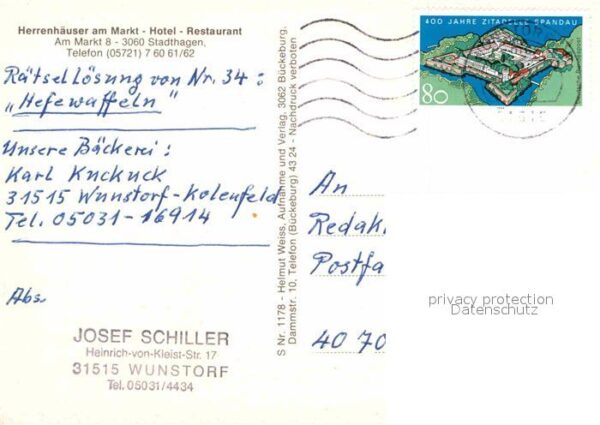 Herrenhäuser am Markt - Hotel - Restaurant
Am Markt 8 - 3060 Stadthagen,
Telefon (05721) 7 60 61/62
Rätsellösung von Nr. 34:
„Hefewaffeln"
Unsere Bäckerei:
Karl Kuckuck
31515 Wunstorf-Kolenfeld
Tel. 05031-16914
Abs.
JOSEF SCHILLER
Heinrich-von-Kleist-Str. 17
31515 WUNSTORF
Tel. 05031/4434
S Nr. 1178 - Helmut Weiss, Aufnahme und Verlag, 3062 Bückeburg,
Dammstr. 10, Telefon (Bückeburg) 43 24 - Nachdruck verboten
400 JAHRE ZITADELLE SPANDAU
80
An
Redak.
Postfa
40 70
privacy protection
Datenschutz